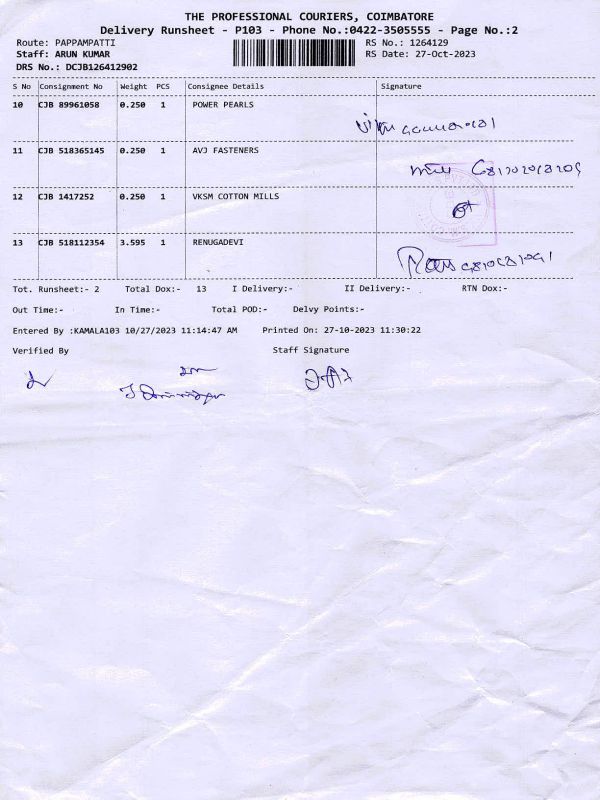 THE PROFESSIONAL COURIERS, COIMBATORE
Delivery Runsheet - P103 - Phone No.:0422-3505555 - Page No.:2
Route: PAPPAMPATTI RS No.: 1264129
Staff: ARUN KUMAR RS Date: 27-Oct-2023
DRS No.: DCJB126412902
S No Consignment No Weight PCS Consignee Details Signature
10 CJB 89961058 0.250 1 POWER PEARLS
11 CJB 518365145 0.250 1 AVJ FASTENERS
12 CJB 1417252 0.250 1 VKSM COTTON MILLS
13 CJB 518112354 3.595 1 RENUGADEVI
Tot. Runsheet:- 2 Total Dox:- 13 I Delivery:- II Delivery:- RTN Dox:-
Out Time:- In Time:- Total POD:- Delvy Points:-
Entered By :KAMALA103 10/27/2023 11:14:47 AM Printed On: 27-10-2023 11:30:22
Verified By Staff Signature